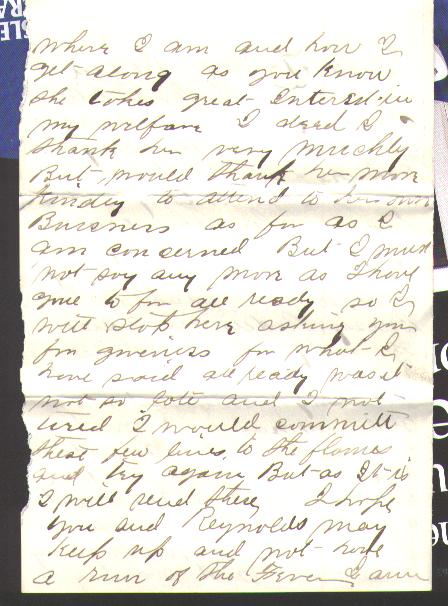 where I am and how I
get along as you know
she takes great Interest in
my welfare I deed I
thank her very muchly
But would thank her more
kindley to attend to her own
Buisness as far as I
am concerned But I must
not say any more as I have
gone to far all ready so I
will stop here asking you
for giveniss for what I
have said all ready was it
not so late and I not
tired I would committ
these few lines to the flames
and try again But as It is
I will send them I hope
you and Reynolds may
keep up and not have
a run of the Fever I am